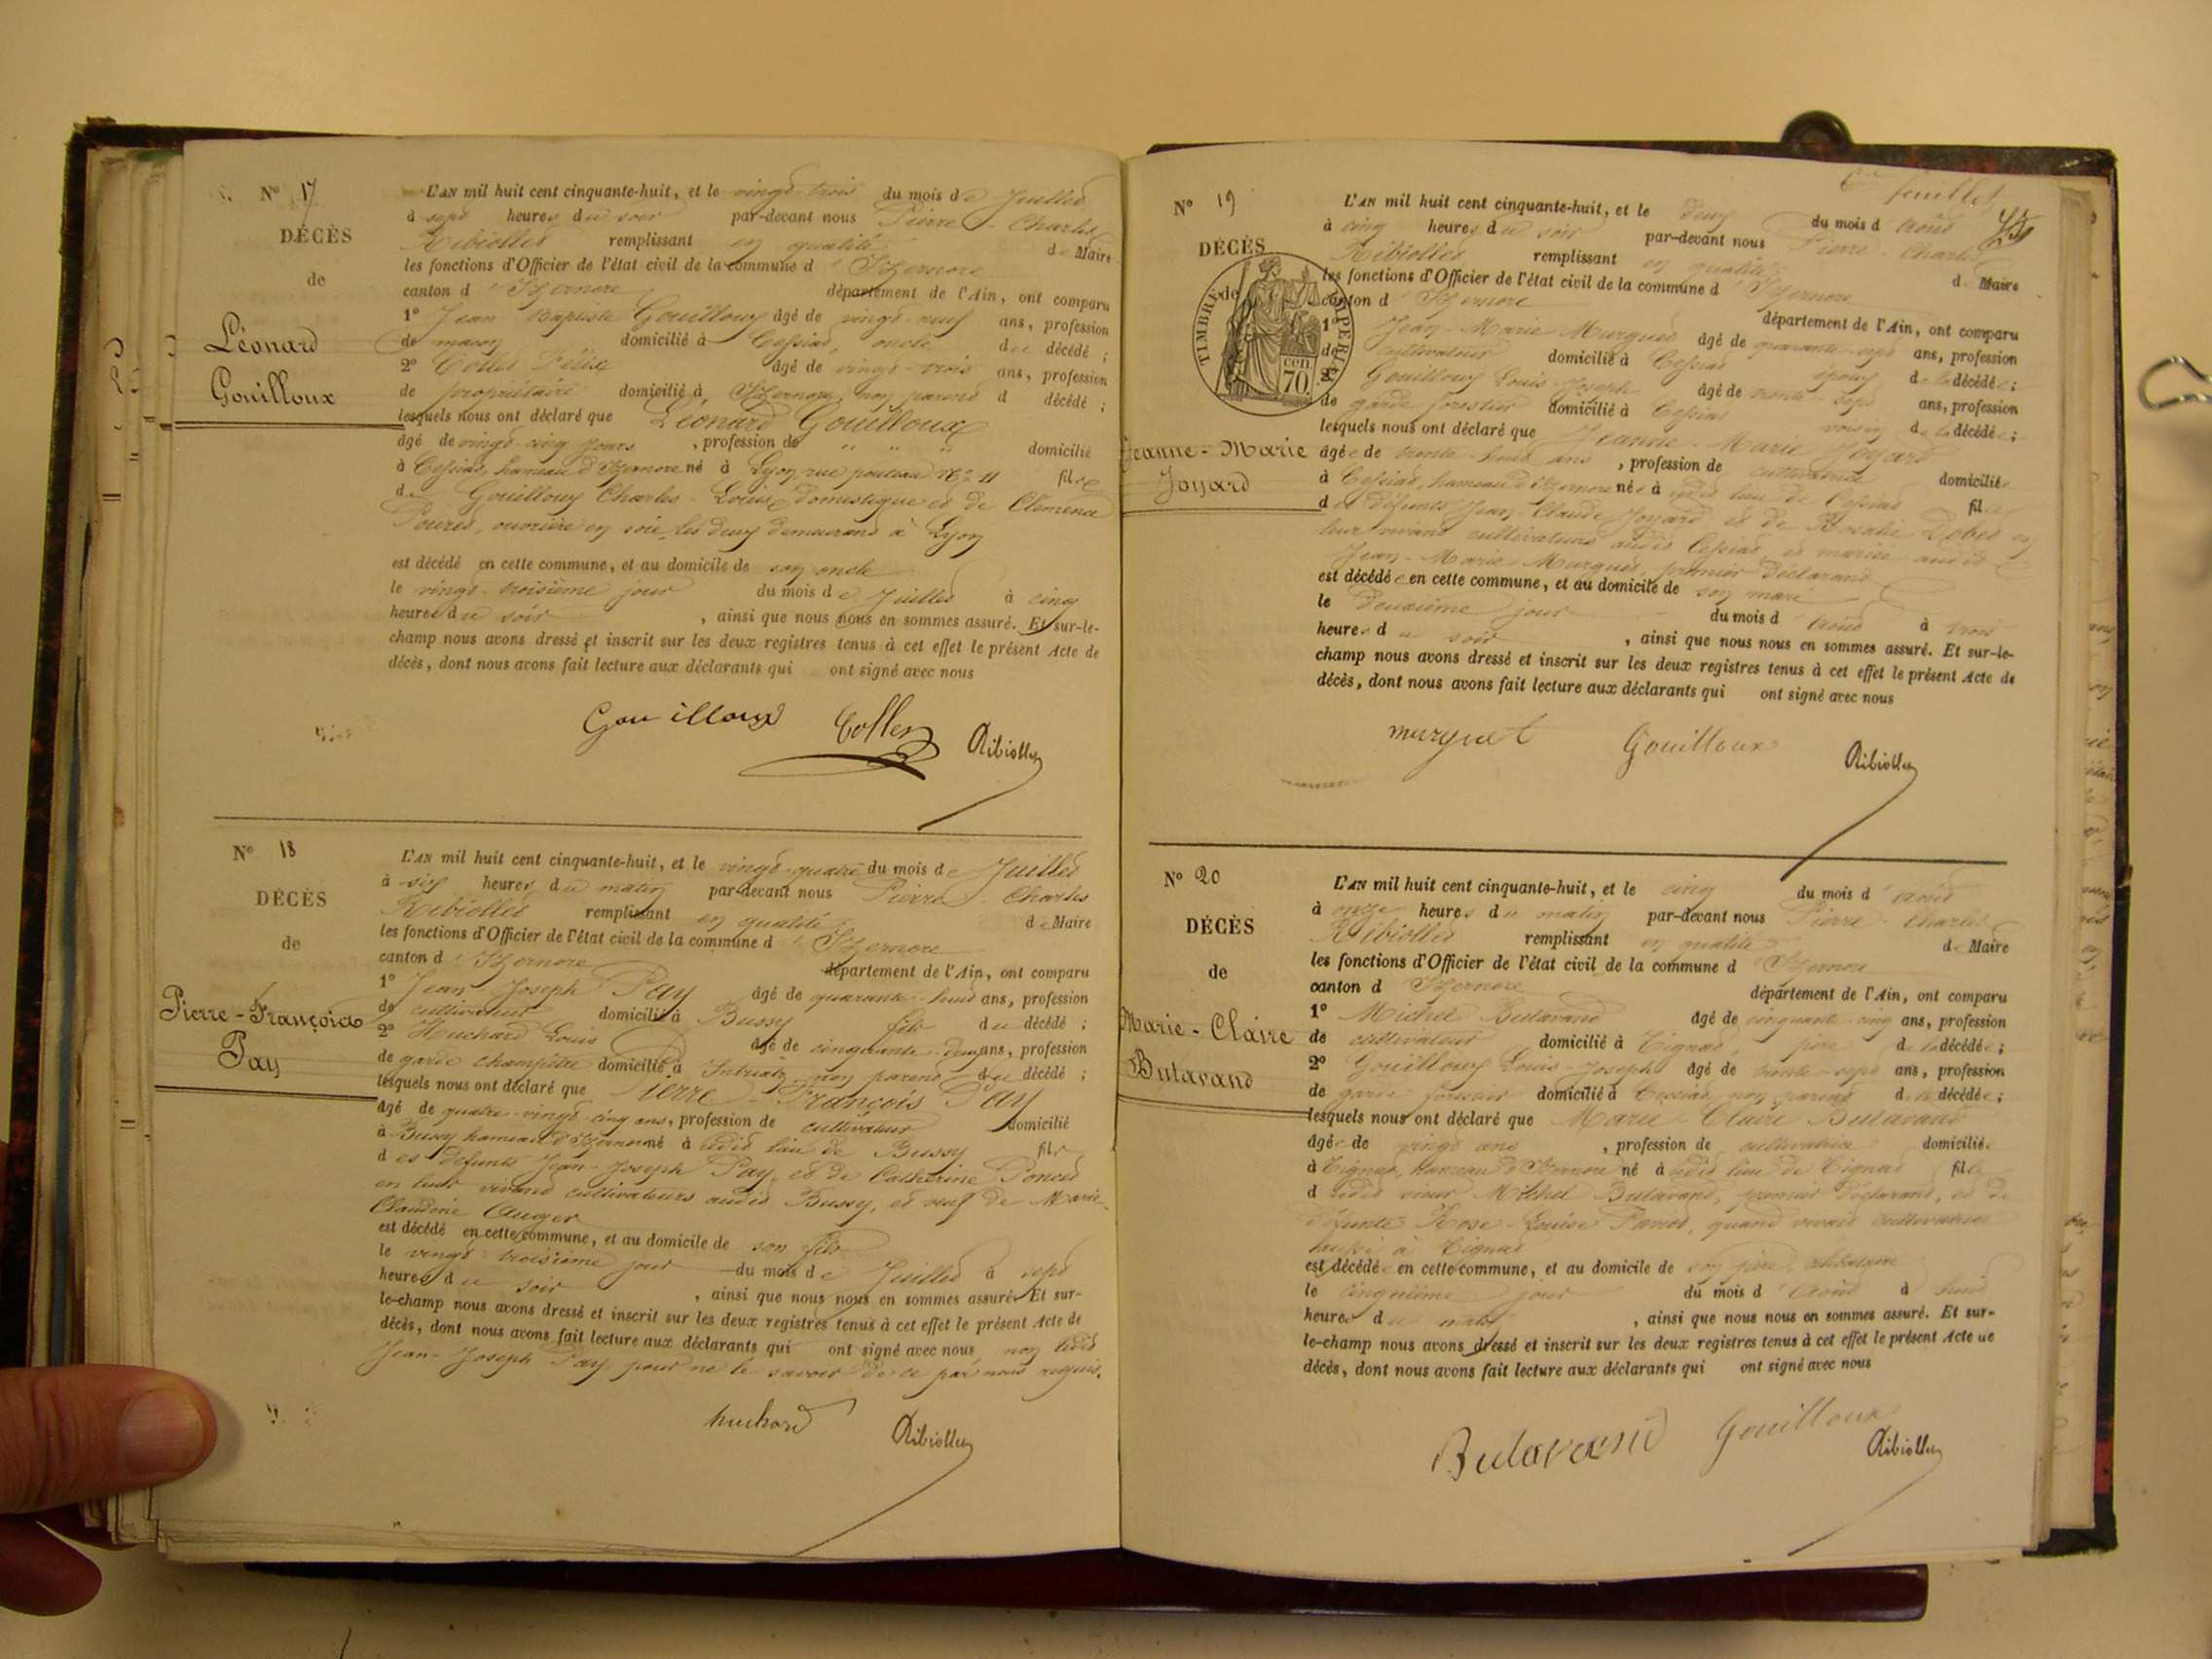 N° 17
DÉCÈS
de
Léonard
Gouilloux
L'AN mil huit cent cinquante-huit, et le vingt-trois du mois de Juillet
à sept heures du soir par-devant nous Pierre-Charles
Ribiollet remplissant en qualité de Maire
les fonctions d'Officier de l'état civil de la commune d'Izernore
canton d'Izernore département de l'Ain, ont comparu
1° Jean Baptiste Gouilloux âgé de vingt-neuf ans, profession
de maçon domicilié à Cessiat, oncle du décédé ;
2° Collet Félix âgé de vingt-trois ans, profession
de propriétaire domicilié à Izernore, non parent d décédé ;
lesquels nous ont déclaré que Léonard Gouilloux
âgé de vingt-cinq jours , profession de " " " domicilié
à Cessiat, hameau d'Izernore né à Lyon, rue N° 11 fils
de Gouilloux Charles-Louis, domestique et de Clémence
ouvrière en soie, les deux demeurant à Lyon
est décédé en cette commune, et au domicile de son oncle
le vingt-troisième jour du mois de Juillet à cinq
heures du soir , ainsi que nous nous en sommes assuré. Et sur-le-
champ nous avons dressé et inscrit sur les deux registres tenus à cet effet le présent Acte de
décès, dont nous avons fait lecture aux déclarants qui ont signé avec nous
Gouilloux Collet Ribiollet
N° 18
DÉCÈS
de
Pierre-François
Pay
L'AN mil huit cent cinquante-huit, et le vingt-quatre du mois de Juillet
à six heures du matin par-devant nous Pierre-Charles
Ribiollet remplissant en qualité de Maire
les fonctions d'Officier de l'état civil de la commune d'Izernore
canton d'Izernore département de l'Ain, ont comparu
1° Jean Joseph Pay âgé de quarante-huit ans, profession
de cultivateur domicilié à Bussy fils du décédé ;
2° Huchard Louis âgé de cinquante-deux ans, profession
de garde champêtre domicilié à Intriat, non parent du décédé ;
lesquels nous ont déclaré que Pierre-François Pay
âgé de quatre-vingt-cinq ans, profession de cultivateur domicilié
à Bussy hameau d'Izernore né à udit lieu de Bussy fils
des défunts Jean-Joseph Pay, et de Catherine Poncet
en leur vivant cultivateurs audit Bussy, et veuf de Marie-
Claudine Auger
est décédé en cette commune, et au domicile de son fils
le vingt-troisième jour du mois de Juillet à sept
heures du soir , ainsi que nous nous en sommes assuré. Et sur-
le-champ nous avons dressé et inscrit sur les deux registres tenus à cet effet le présent Acte de
décès, dont nous avons fait lecture aux déclarants qui ont signé avec nous non ledit
Jean-Joseph Pay pour ne le savoir de ce par nous requis.
huchard Ribiollet
6e feuillet
N° 19
DÉCÈS
de
TIMBRE IMPÉRIAL
70 cen
Jeanne-Marie
Joyard
L'AN mil huit cent cinquante-huit, et le deux du mois d'Août
à cinq heures du soir par-devant nous Pierre-Charles
Ribiollet remplissant en qualité de Maire
les fonctions d'Officier de l'état civil de la commune d'Izernore
canton d'Izernore département de l'Ain, ont comparu
1° Jean-Marie Murguet âgé de quarante-sept ans, profession
de cultivateur domicilié à Cessiat époux de la décédée ;
2° Gouilloux Louis-Joseph âgé de trente-sept ans, profession
de garde forestier domicilié à Cessiat voisin de la décédée ;
lesquels nous ont déclaré que Jeanne-Marie Joyard
âgée de trente-huit ans , profession de cultivatrice domiciliée
à Cessiat, hameau d'Izernore née à udit lieu de Cessiat fille
des défunts Jean-Claude Joyard, et de Rosalie en
leur vivant cultivateurs audit Cessiat, et mariée audit
Jean-Marie Murguet, premier déclarant
est décédée en cette commune, et au domicile de son mari
le deuxième jour du mois d'Août à trois
heures du soir , ainsi que nous nous en sommes assuré. Et sur-le-
champ nous avons dressé et inscrit sur les deux registres tenus à cet effet le présent Acte de
décès, dont nous avons fait lecture aux déclarants qui ont signé avec nous
murguet Gouilloux Ribiollet
N° 20
DÉCÈS
de
Marie-Claire
Butavand
L'AN mil huit cent cinquante-huit, et le cinq du mois d'Août
à onze heures du matin par-devant nous Pierre-Charles
Ribiollet remplissant en qualité de Maire
les fonctions d'Officier de l'état civil de la commune d'Izernore
canton d'Izernore département de l'Ain, ont comparu
1° Michel Butavand âgé de cinquante-cinq ans, profession
de cultivateur domicilié à Tignat, père de la décédée ;
2° Gouilloux Louis-Joseph âgé de trente-sept ans, profession
de garde forestier domicilié à Cessiat, non parent de la décédée ;
lesquels nous ont déclaré que Marie-Claire Butavand
âgée de vingt ans , profession de cultivatrice domiciliée
à Tignat, hameau d'Izernore né à udit lieu de Tignat fille
dudit sieur Michel Butavand, premier déclarant, et de
défunte Rose-Louise quand vivait cultivatrice
aussi à Tignat
est décédée en cette commune, et au domicile de son père,
le cinquième jour du mois d'Août à huit
heures du matin , ainsi que nous nous en sommes assuré. Et sur-
le-champ nous avons dressé et inscrit sur les deux registres tenus à cet effet le présent Acte de
décès, dont nous avons fait lecture aux déclarants qui ont signé avec nous
Butavand Gouilloux Ribiollet